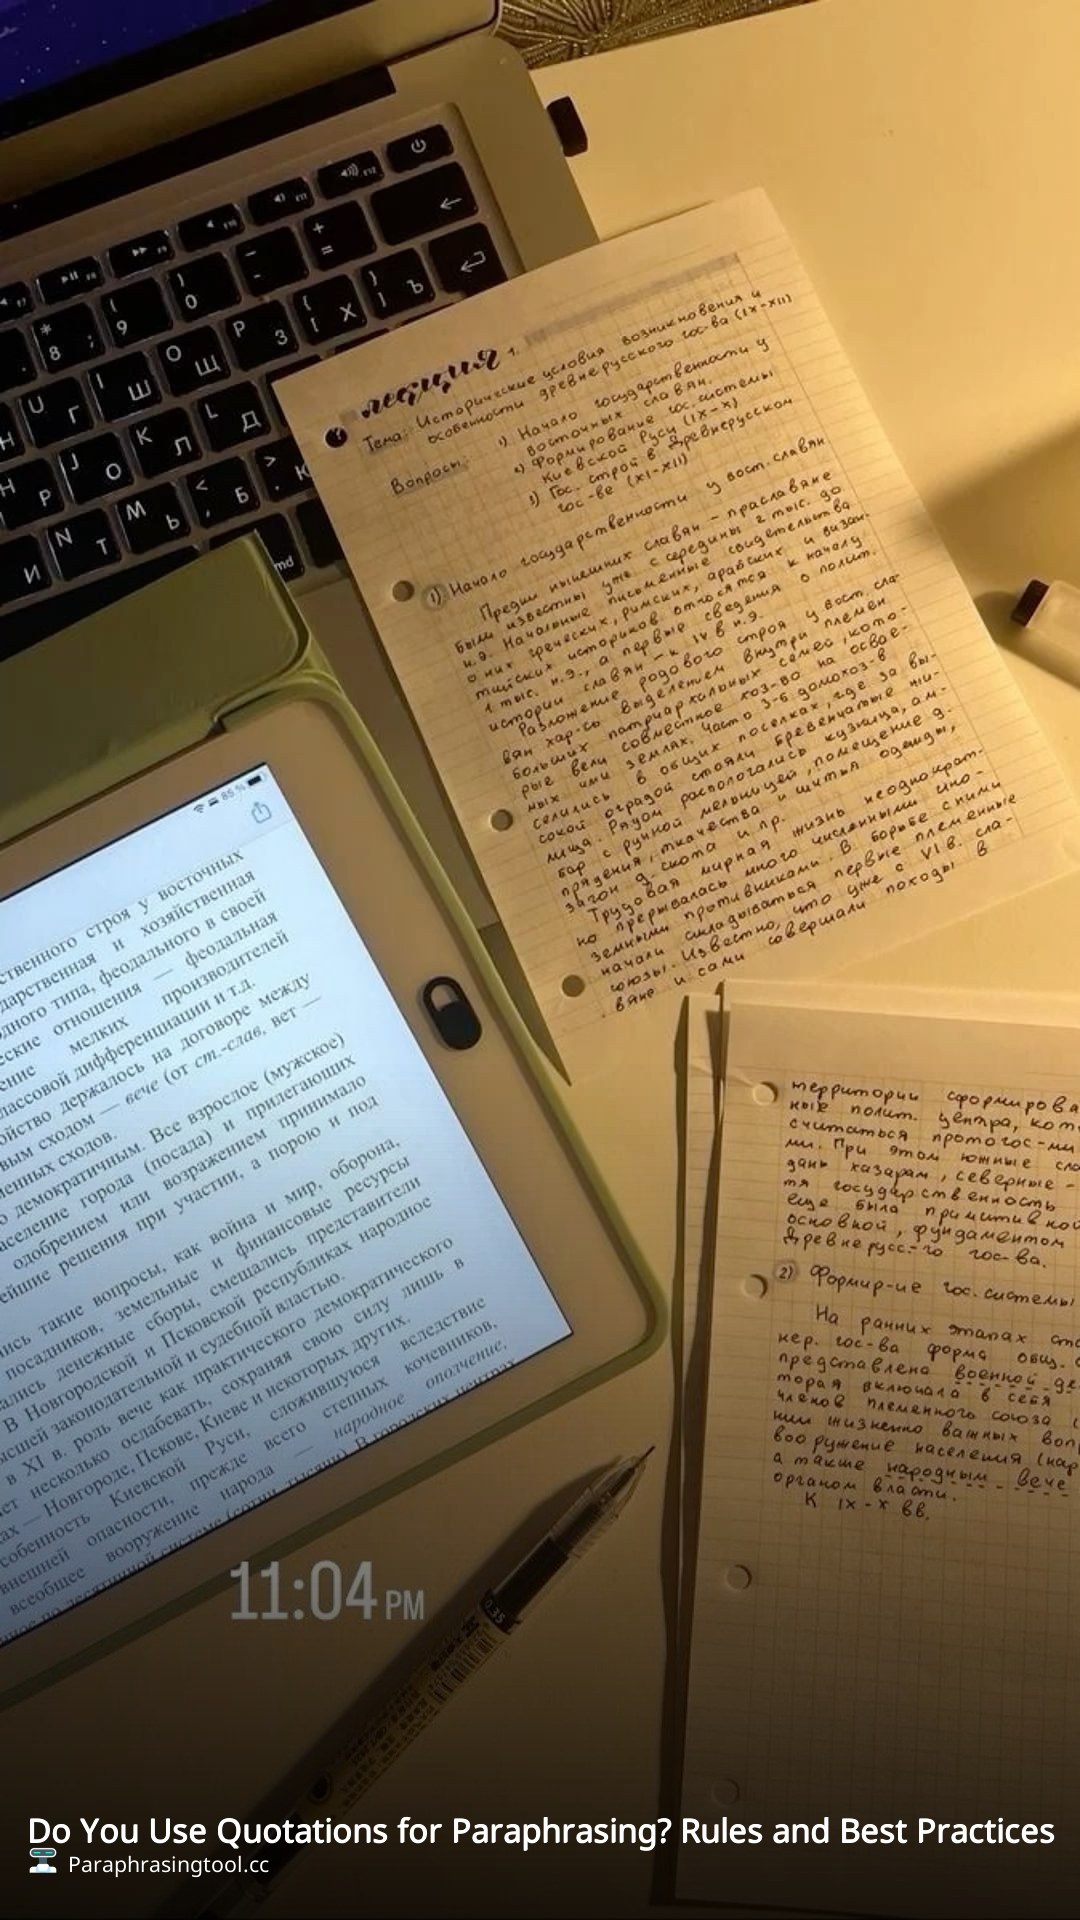 лекция 1.
Тема: Исторические условия возникновения и
особенности древнерусского гос-ва (IX-XII)
Вопросы: 1) Начало государственности у
восточных славян.
2) Формирование гос. системы
Киевской Руси (IX-X)
3) Гос. строй в Древнерусском
гос-ве (XI-XII)
1) Начало государственности у вост. славян
Предки нынешних славян - праславяне
были известны уже с середины 2 тыс. до
н.э. Начальные письменные свидетельства
о них греческих, римских, арабских и визан-
тийских историков относятся к началу
1 тыс. н.э., а первые сведения о полит.
истории славян - к IV в н.э.
Разложение родового строя у вост. сла-
вян хар-сь выделением внутри племен
больших патриархальных семей, кото-
рые вели совместное хоз-во на освое-
ных ими землях. Часто 3-6 домохоз-в
селились в общих поселках, где за вы-
сокой оградой стояли бревенчатые жи-
лища. Рядом распологались кузница, ам-
бар с ручной мельницей, помещение д.
прядения, ткачества и шитья одежды,
загон д. скота и пр.
Трудовая мирная жизнь неоднократ-
но прерывалась много численными ино-
земными противниками. В борьбе с ними
начали складываться первые племенные
союзы. Известно, что уже с VI в. сла-
вяне и сами совершали походы в
85 %
ственного строя у восточных
дарственная и хозяйственная
дного типа, феодального в своей
еские отношения — феодальная
ение мелких производителей
лассовой дифференциации и т.д.
ойство держалось на договоре между
вым сходом — вече (от ст.-слав, вет —
енных сходов.
о демократичным. Все взрослое (мужское)
аселение города (посада) и прилегающих
одобрением или возражением принимало
ейшие решения при участии, а порою и под
ись такие вопросы, как война и мир, оборона,
посадников, земельные и финансовые ресурсы
ались денежные сборы, смещались представители
В Новгородской и Псковской республиках народное
ысшей законодательной и судебной властью.
в XI в. роль вече как практического демократического
ает несколько ослабевать, сохраняя свою силу лишь в
ах — Новгороде, Пскове, Киеве и некоторых других.
собенность Киевской Руси, сложившуюся вследствие
внешней опасности, прежде всего степных кочевников,
всеобщее вооружение народа — народное ополчение,
территории сформирова
ные полит. центра, кот
считаться протогос-ми
ми. При этом южные сла
дань хазарам, северные -
тя государственность
еще была примитивной
основной, фундаментом
Древнерусс-го гос-ва.
2) Формир-ие гос. системы
На ранних этапах ста
нер. гос-ва форма общ.
представлена военной де
торая включала в себя
членов племенного союза
нии жизненно важных воп
вооружение населения (нар
а также народным вече
органом власти.
К IX-X вв.
11:04 PM
0.35
Do You Use Quotations for Paraphrasing? Rules and Best Practices
Paraphrasingtool.cc